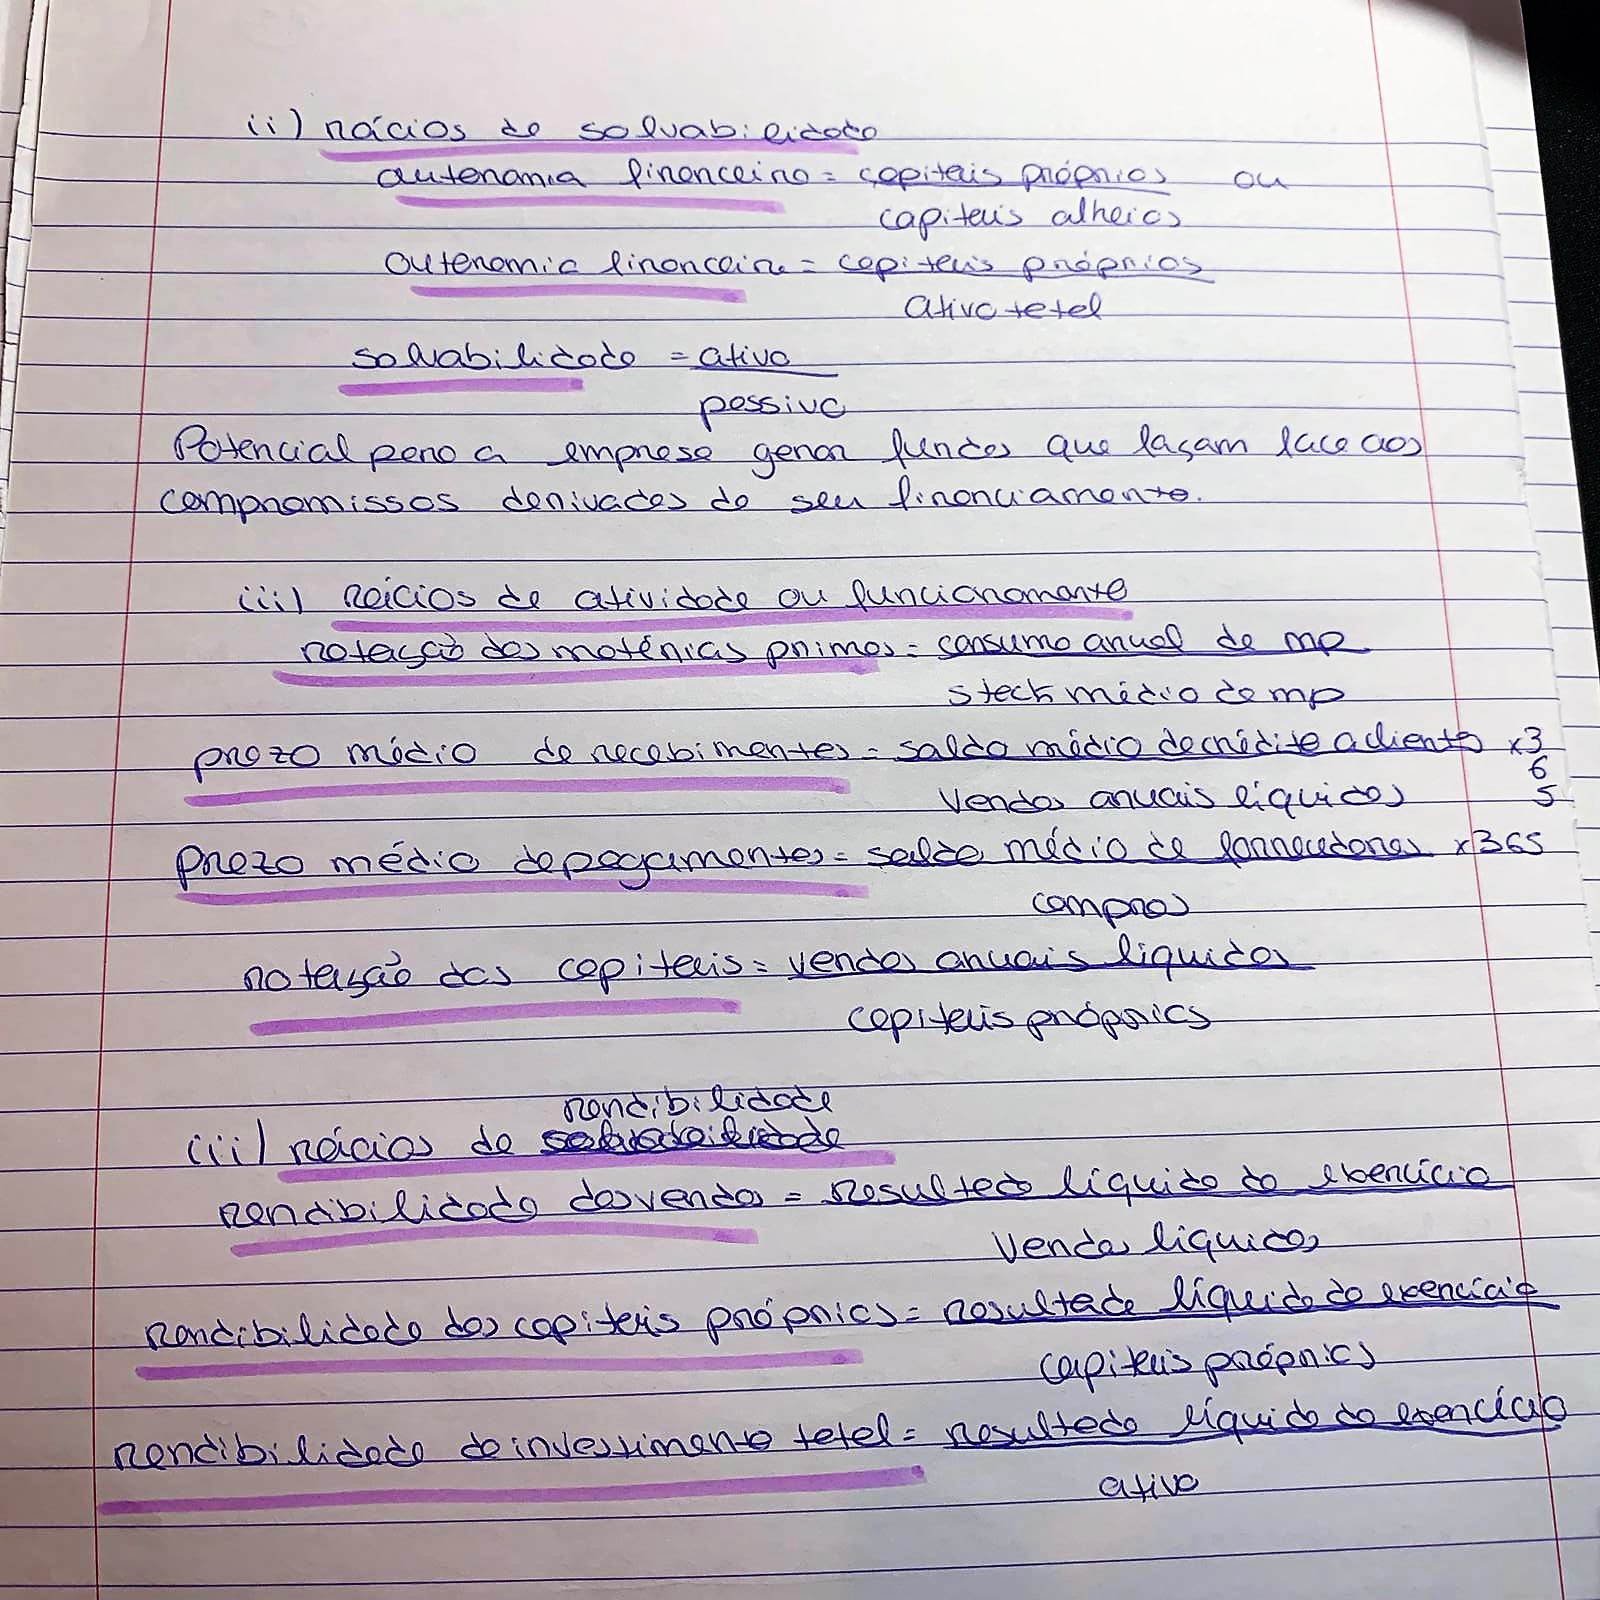 ii) rácios de solvabilidade
autonomia financeira = capitais próprios ou
capitais alheios
autonomia financeira = capitais próprios
Ativo total
solvabilidade = ativo
passivo
Potencial para a empresa gerar fundos que façam face aos
compromissos derivados do seu financiamento.
iii) Rácios de atividade ou funcionamento
rotação das matérias primas = consumo anual de mp
stock médio de mp
prazo médio de recebimentos = saldo médio de crédito a clientes x 3
6
vendas anuais líquidas 5
prazo médio de pagamentos = saldo médio de fornecedores x 365
compras
rotação dos capitais = vendas anuais líquidas
capitais próprios
rendibilidade
iii) rácios de solvabilidade
rendibilidade das vendas = Resultado líquido do exercício
Vendas líquidas
rendibilidade dos capitais próprios = resultado líquido do exercício
capitais próprios
rendibilidade do investimento total = resultado líquido do exercício
ativo